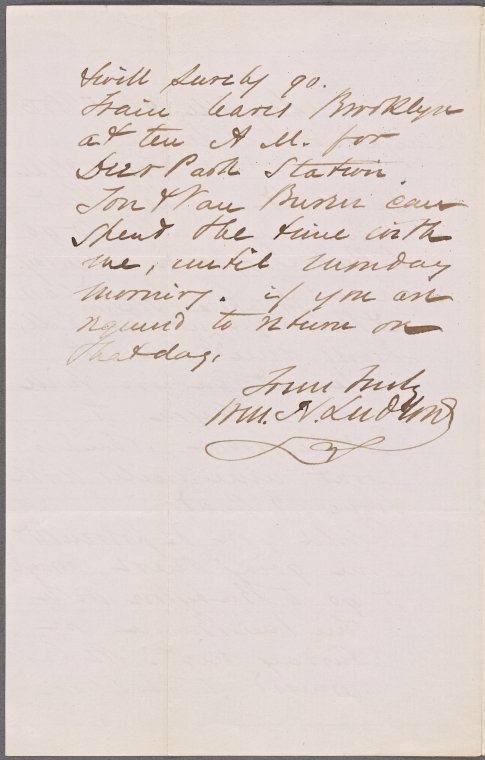 & will surely go.
Train leaves Brooklyn
at ten A M. for
Deer Park Station.
You & Van Buren can
spend the time with
me, until Monday
morning. if you are
required to return on
that day,
Yours Truly
Wm. N. Ludlow